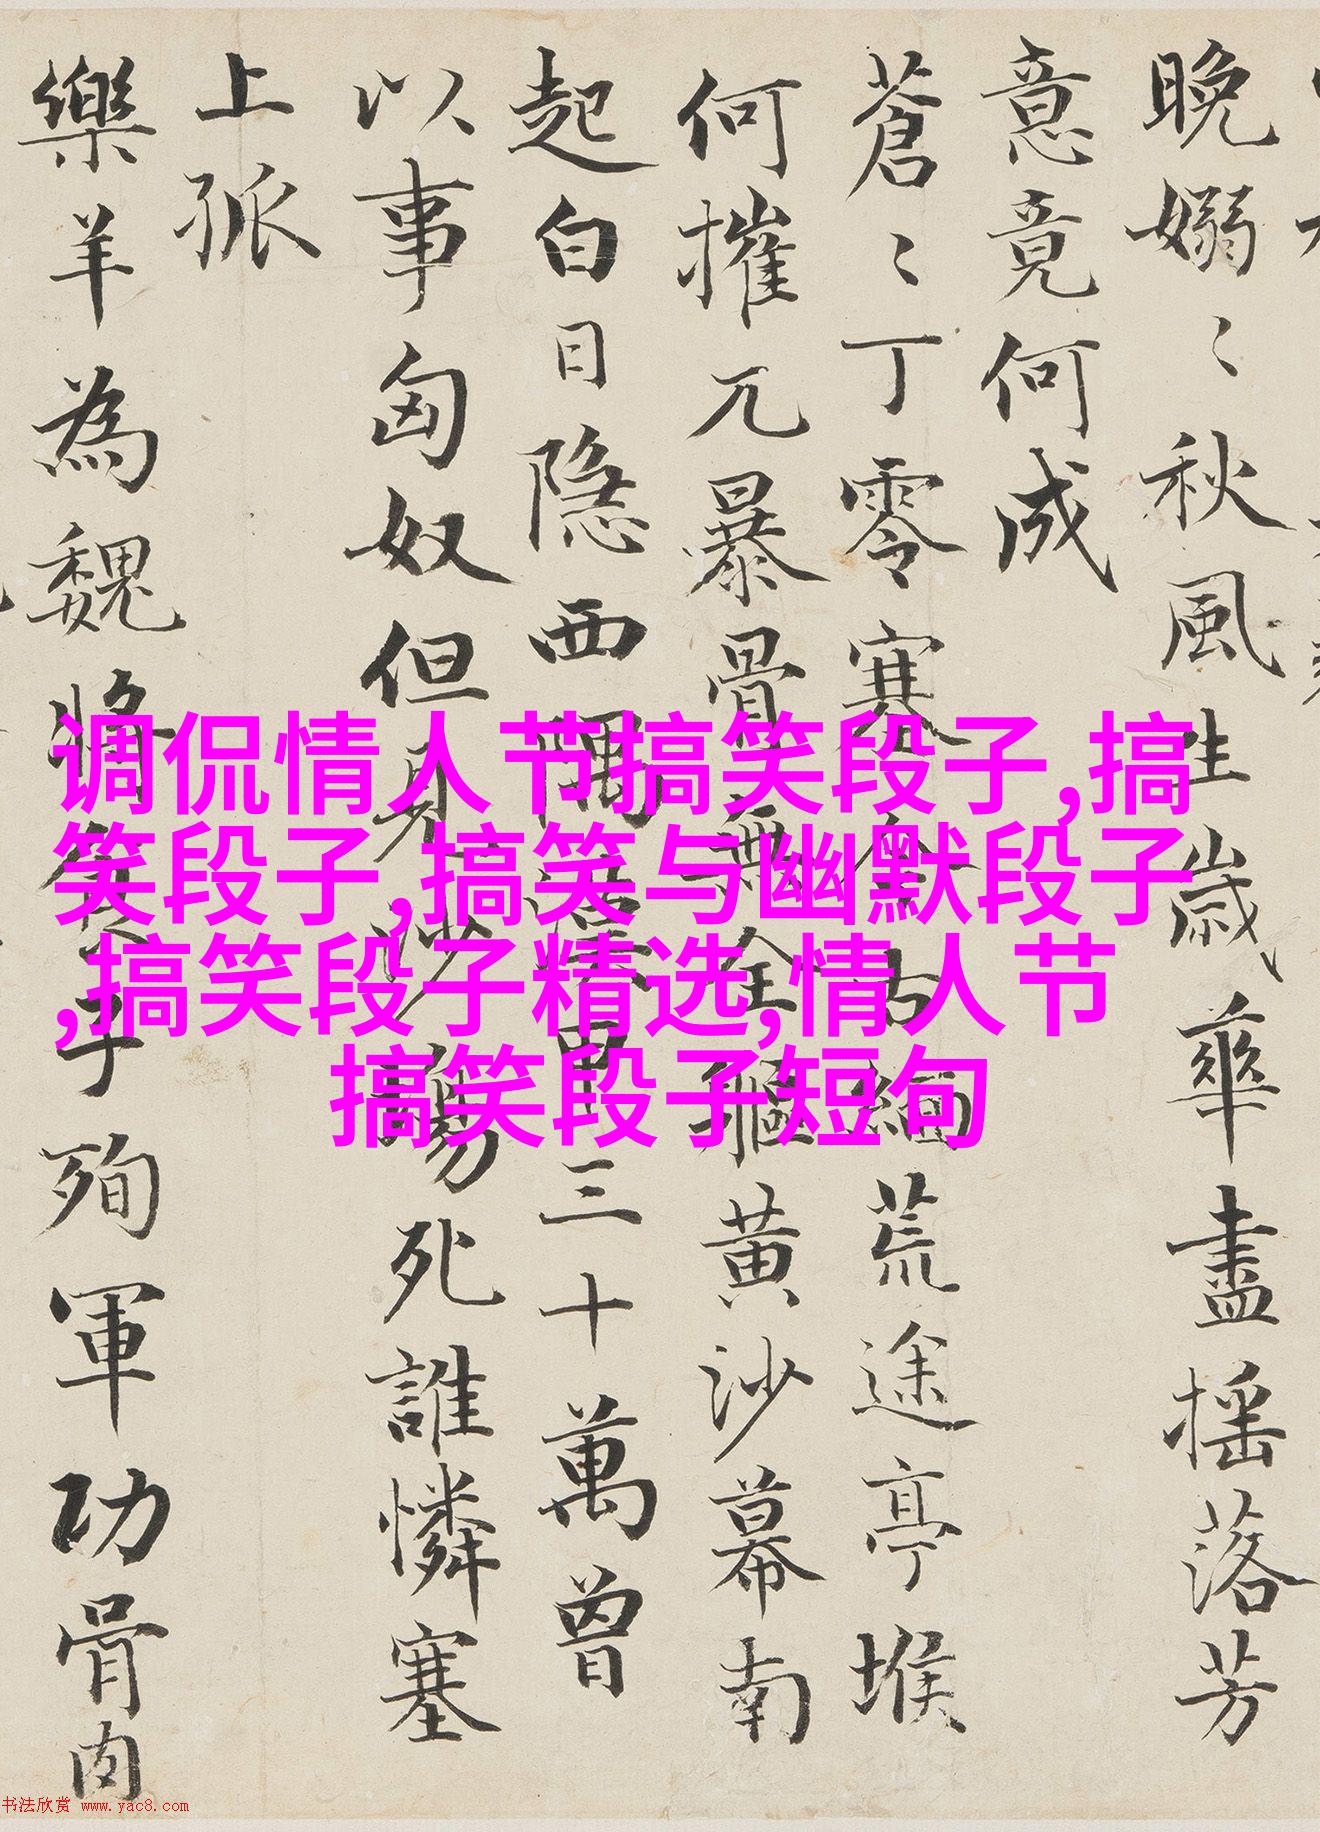 晚嫋〻秋風生歲華盡摇落芳
意竟何成
蒼〻丁零塞今古緬荒途亭堠
何摧兀暴骨無全軀黄沙幕南
起白日隐西隅漢甲三十萬曾
以事匈奴但見沙塲死誰憐塞
上孤
樂羊為魏將食子殉軍功骨肉
调侃情人节搞笑段子,搞
笑段子,搞笑与幽默段子
,搞笑段子精选,情人节
搞笑段子短句
书法欣赏 www.yac8.com